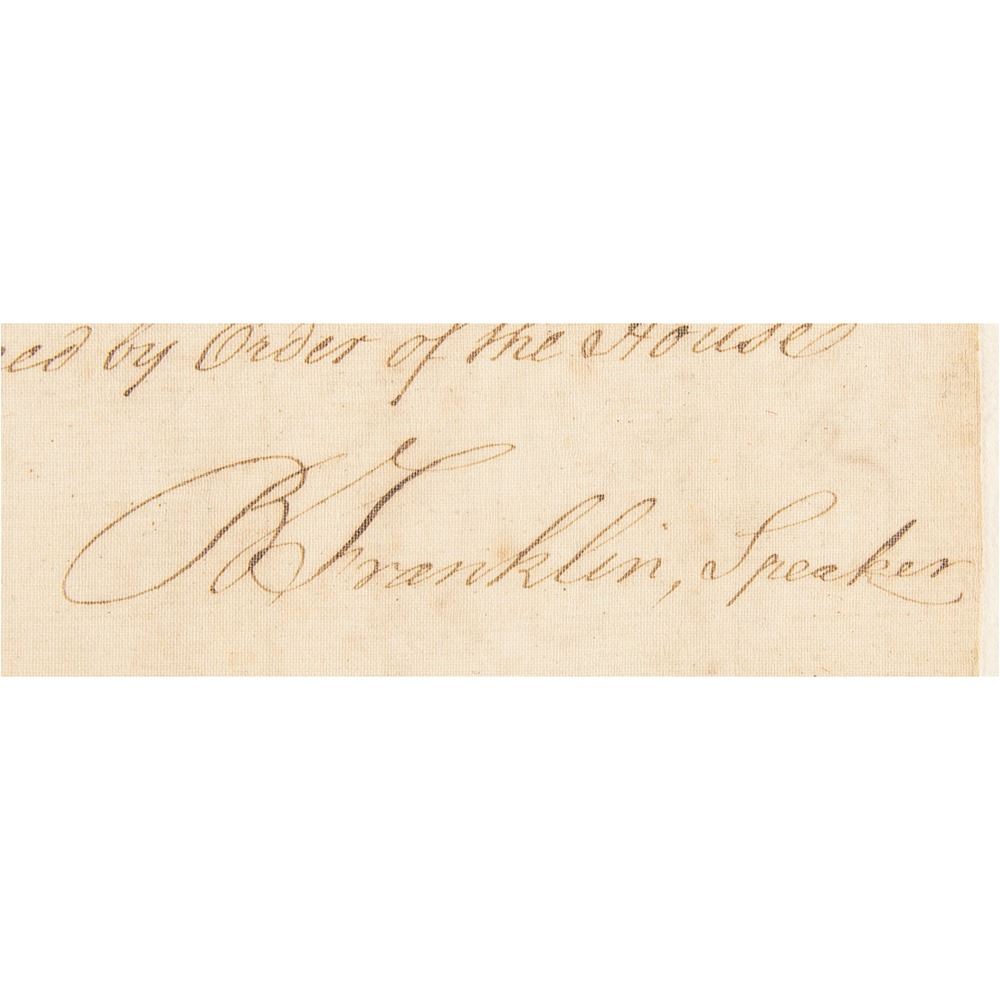 ed by Order of the House
B Franklin, Speaker